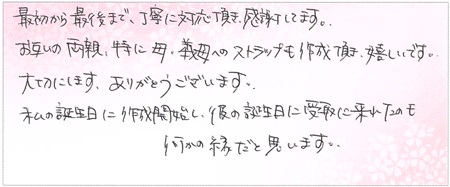 最初から最後まで、丁寧に対応頂き、感謝してます。
お互いの両親、特に母・義母へのストラップも作成頂き、嬉しいです。
大切にします、ありがとうございます。
私の誕生日に作成開始し、彼の誕生日に受取に来れたのも
何かの縁だと思います。